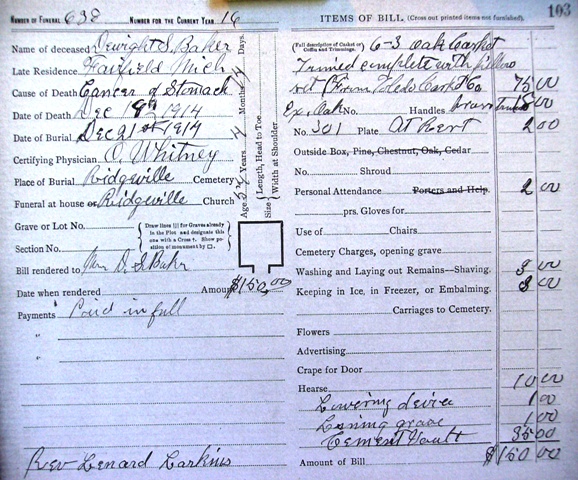 NUMBER OF FUNERAL 638 NUMBER FOR THE CURRENT YEAR 16
Name of deceased Dwight S. Baker
Late Residence Fairfield Mich
Cause of Death Cancer of Stomach
Date of Death Dec 19th 1914
Date of Burial Dec 21st 1914
Certifying Physician O. Whitney
Place of Burial Ridgeville Cemetery
Funeral at house or Ridgeville Church
Age Years Months Days.
Size { Length, Head to Toe
Width at Shoulder
Grave or Lot No.
Section No.
Draw lines ||| for Graves already in the Plot and designate this one with a Cross †. Show position of monument by □.
Bill rendered to Mrs D. S. Baker
Date when rendered Amount $150.00
Payments Paid in full
"
"
Rev Lenard Larkins
103
ITEMS OF BILL. (Cross out printed items not furnished).
(Full description of Casket or Coffin and Trimmings. 6-3 Oak Casket
Trimed complete with pillow
set (From Toledo Caskt Co 75 00
Ex. Oak No. Handles 15 00
No. 301 Plate At Rest 2 00
Outside Box, Pine, Chestnut, Oak, Cedar
No. Shroud
Personal Attendance Porters and Help. 2 00
prs. Gloves for
Use of Chairs
Cemetery Charges, opening grave
Washing and Laying out Remains—Shaving. 3 00
Keeping in Ice, in Freezer, or Embalming. 8 00
Carriages to Cemetery.
Flowers
Advertising.
Crape for Door
Hearse 10 00
Lowering device 1 00
Lining grave 1 00
Cement Vault 35 00
Amount of Bill $150 00